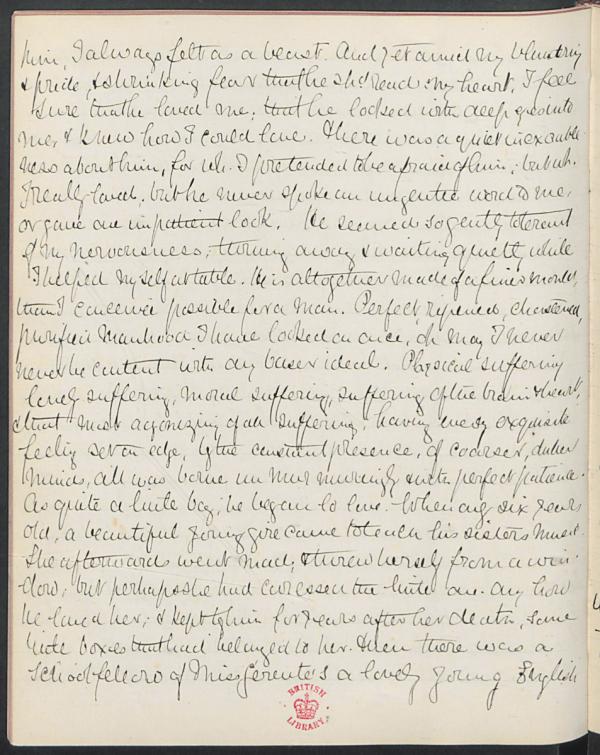 him, I always felt as a beast. And yet amid my blustering
& pride, & shrinking fear that he shd read my heart, I feel
sure that he loved me; that he looked with deep eyes into
me, & knew how I could love. There was a quiet inexorable-
ness about him, for wh. I pretended to be afraid of him; but wh.
I really loved. but he never spoke an ungentle word to me,
or gave an impatient look. He seemed so gently tolerant
of my nervousness; turning away & waiting quietly while
I helped myself at table. He is altogether made of a finer mould,
than I conceive possible for a man. Perfect, ripened, chastened,
purified manhood I have looked on once, oh may I never
never be content with any baser ideal. Physical suffering
lonely suffering, moral suffering, suffering of the brain & heart,
& that most agonizing of all suffering, having every exquisite
feeling set on edge, by the constant presence, of coarser, duller
minds, all was borne un murmuringly & with perfect patience.
As quite a little boy, he began to love. When only six years
old, a beautiful young girl came to teach his sisters music.
She afterwards went mad, & threw herself from a win-
dow; but perhaps she had caressed the little one. any how
he loved her; & kept by him for years after her death, some
little boxes that had belonged to her. Then there was a
schoolfellow of Miss a lovely young English
BRITISH
LIBRARY